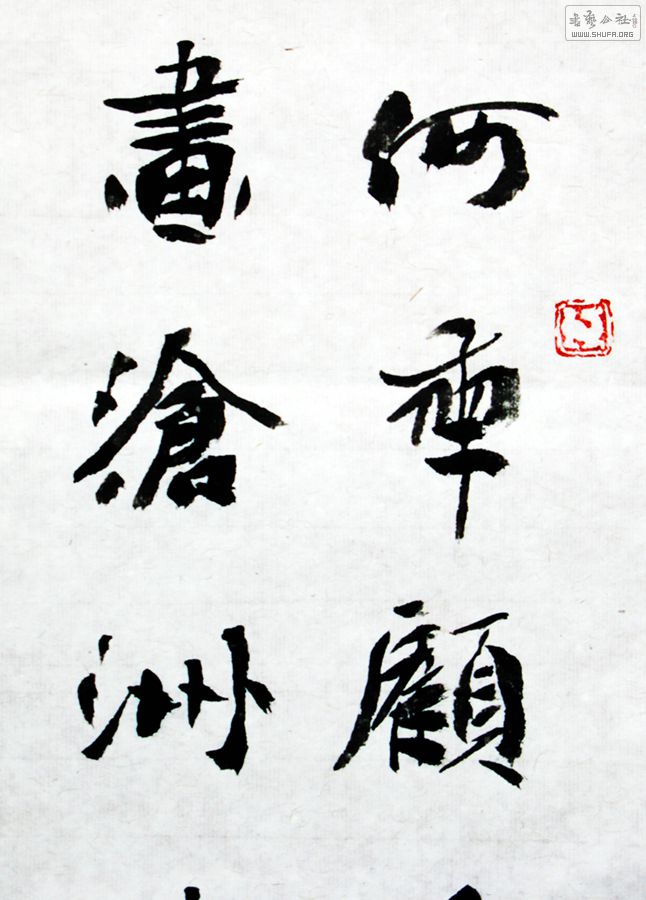 何年顧
畫滄洲
書藝公社
WWW.SHUFA.ORG